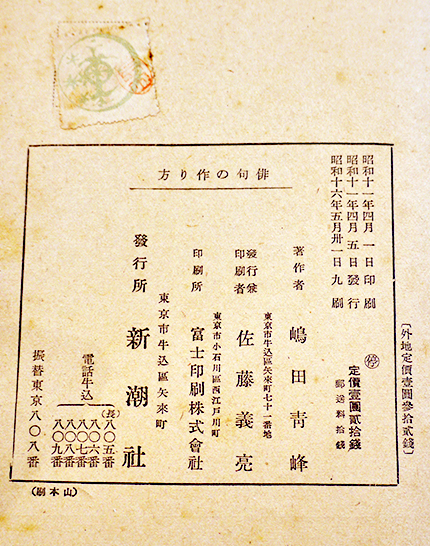 俳句の作り方
昭和十一年四月一日印刷
昭和十一年四月五日發行
昭和十六年五月卅一日九刷
㊡
定價壹圓貳拾錢
郵送料拾錢
〔外地定價壹圓參拾貳錢〕
著作者 嶋田青峰
東京市牛込區矢來町七十一番地
發行兼印刷者 佐藤義亮
東京市小石川區西江戸川町
印刷所 富士印刷株式會社
東京市牛込區矢來町
發行所 新潮社
電話牛込
(長)八〇五番
八〇六番
八〇七番
八〇八番
八〇九番
振替東京八〇八番
(山本刷)